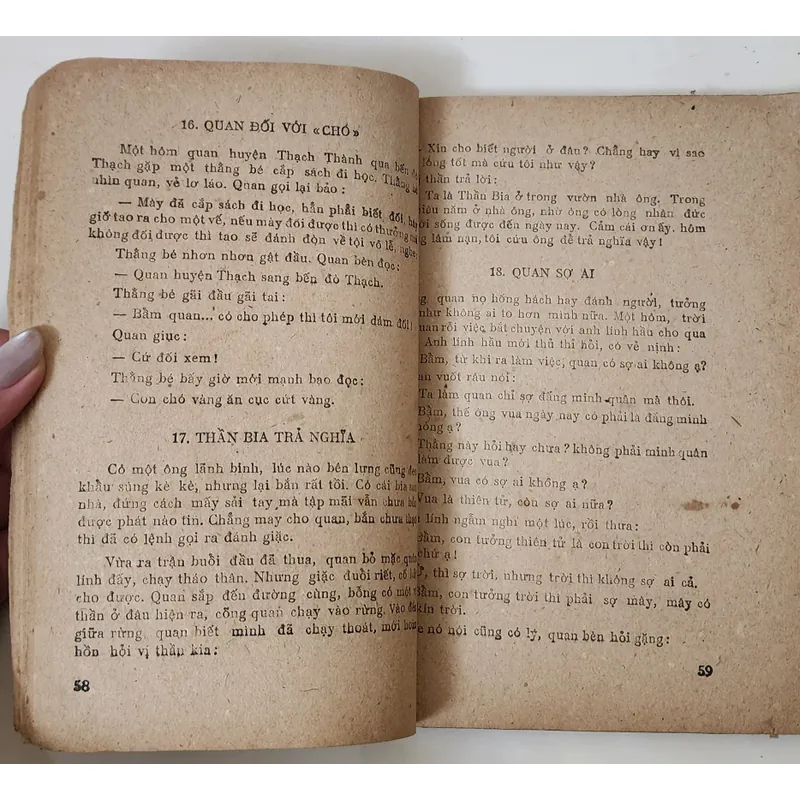 16. QUAN ĐỐI VỚI «CHÓ»
Một hôm quan huyện Thạch Thành qua bến đò
Thạch gặp một thằng bé cắp sách đi học. Thằng bé
nhìn quan, vẻ lơ láo. Quan gọi lại bảo :
— Mày đã cắp sách đi học, hẳn phải biết đối,
giờ tao ra cho một vế, nếu mày đối được thì có thưởng
không đối được thì tao sẽ đánh đòn về tội vô lễ, nghe
Thằng bé nhơn nhơn gật đầu. Quan bèn đọc :
— Quan huyện Thạch sang bến đò Thạch.
Thằng bé gãi đầu gãi tai :
— Bẩm quan... có cho phép thì tôi mới dám đối !
Quan giục :
— Cứ đối xem !
Thằng bé bấy giờ mới mạnh bạo đọc :
— Con chó vàng ăn cục cứt vàng.
17. THẦN BIA TRẢ NGHĨA
Có một ông lãnh binh, lúc nào bên lưng cũng đeo
khẩu súng kè kè, nhưng lại bắn rất tồi. Có cái bia
nhà, đứng cách mấy sải tay mà tập mãi vẫn chưa
được phát nào tin. Chẳng may cho quan, bắn chưa
thì đã có lệnh gọi ra đánh giặc.
Vừa ra trận buổi đầu đã thua, quan bỏ mặc
lính đấy, chạy tháo thân. Nhưng giặc đuổi riết,
cho được. Quan sắp đến đường cùng, bỗng có một
thần ở đâu hiện ra, cõng quan chạy vào rừng. Vào
giữa rừng quan biết mình đã chạy thoát, mới
hồn hỏi vị thần kia :
58
- Xin cho biết người ở đâu? Chẳng hay vì sao
lòng tốt mà cứu tôi như vậy?
thần trả lời :
Ta là Thần Bia ở trong vườn nhà ông. Trong
năm ở nhà ông, nhờ ông có lòng nhân đức
sống được đến ngày nay. Cảm cái ơn ấy. hôm
lâm nạn, tôi cứu ông để trả nghĩa vậy!
18. QUAN SỢ AI
quan nọ hống hách hay đánh người, tưởng
như không ai to hơn mình nữa. Một hôm, trời
quan rỗi việc, bắt chuyện với anh lính hầu cho qua
Anh lính hầu mới thủ thỉ hỏi, có vẻ nịnh :
Bẩm, từ khi ra làm việc, quan có sợ ai không ạ?
vuốt râu nói :
Ta lắm quan chỉ sợ đấng minh quân mà thôi.
Bẩm, thế ông vua ngày nay có phải là đấng minh
ạ?
Thằng này hỏi hay chưa? không phải minh quân
làm được vua?
Bẩm, vua có sợ ai không ạ?
Vua là thiên tử, còn sợ ai nữa?
lính ngẫm nghĩ một lúc, rồi thưa :
Bẩm, con tưởng thiên tử là con trời thì còn phải
chứ ạ!
thì sợ trời, nhưng trời thì không sợ ai cả.
Bẩm, con tưởng trời thì phải sợ mây, mây có
kín trời.
nó nói cũng có lý, quan bèn hỏi gặng :
59